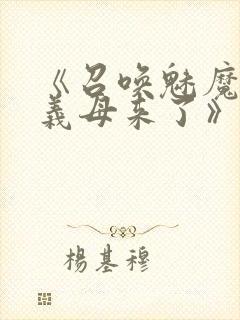 《召唤魅魔
義母来了》
楊基穆